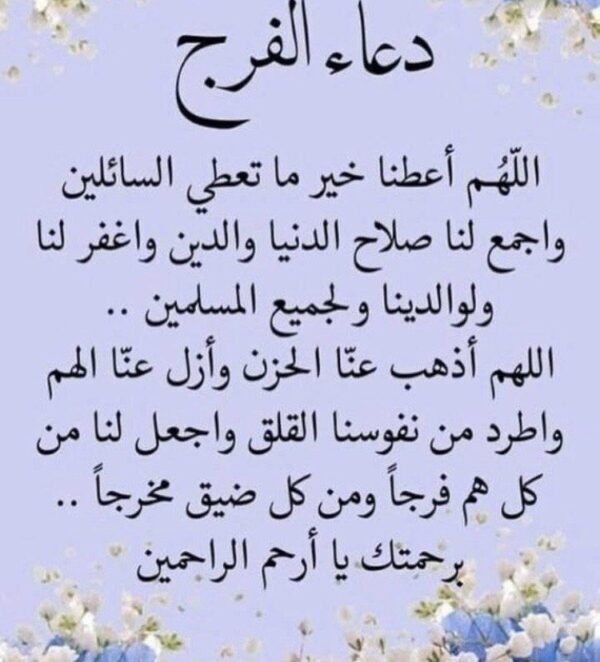 دعاء الفرج
اللّهُم أعطنا خير ما تعطي السائلين
واجمع لنا صلاح الدنيا والدين واغفر لنا
ولوالدينا ولجميع المسلمين ..
اللهم أذهب عنّا الحزن وأزل عنّا الهم
واطرد من نفوسنا القلق واجعل لنا من
كل هم فرجاً ومن كل ضيق مخرجاً ..
برحمتك يا أرحم الراحمين